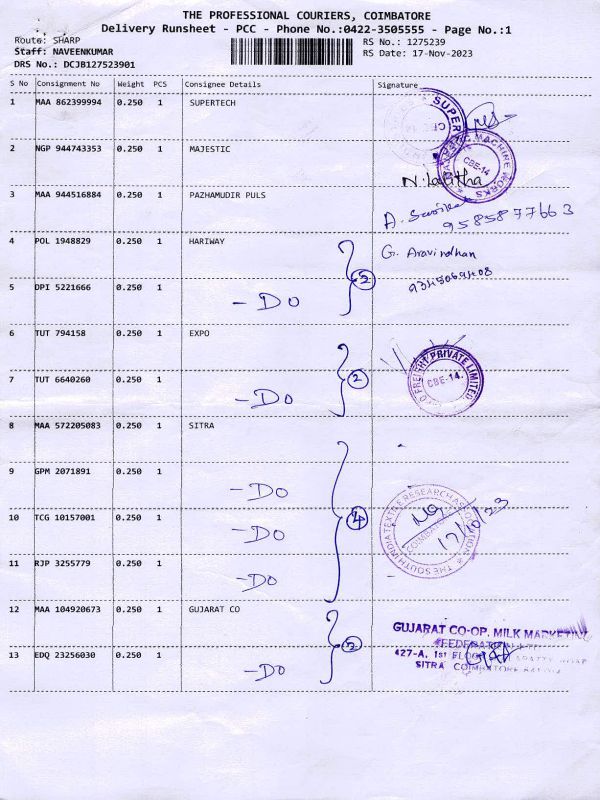 THE PROFESSIONAL COURIERS, COIMBATORE
Delivery Runsheet - PCC - Phone No.:0422-3505555 - Page No.:1
Route: SHARP
RS No.: 1275239
Staff: NAVEENKUMAR
RS Date: 17-Nov-2023
DRS No.: DCJB127523901
S No Consignment No Weight PCS Consignee Details Signature
1 MAA 862399994 0.250 1 SUPERTECH
SUPER
2 NGP 944743353 0.250 1 MAJESTIC
MACHINE WORKS
CBE-14
N. Lalitha
3 MAA 944516884 0.250 1 PAZHAMUDIR PULS
A.
9585877663
4 POL 1948829 0.250 1 HARIWAY
G. Aravindhan
2
5 DPI 5221666 0.250 1 - Do
6 TUT 794158 0.250 1 EXPO
FREIGHT PRIVATE LIMITED
CBE-14.
2
7 TUT 6640260 0.250 1 - Do
8 MAA 572205083 0.250 1 SITRA
9 GPM 2071891 0.250 1 - Do
THE SOUTH INDIA TEXTILE RESEARCH ASSOCIATION
COIMBATORE
17/10/23
4
10 TCG 10157001 0.250 1 - Do
11 RJP 3255779 0.250 1 - Do
12 MAA 104920673 0.250 1 GUJARAT CO
GUJARAT CO-OP. MILK MARKETING
FEDERATION LTD
427-A, 1st FLOOR
SITRA COIMBATORE
2
13 EDQ 23256030 0.250 1 - Do